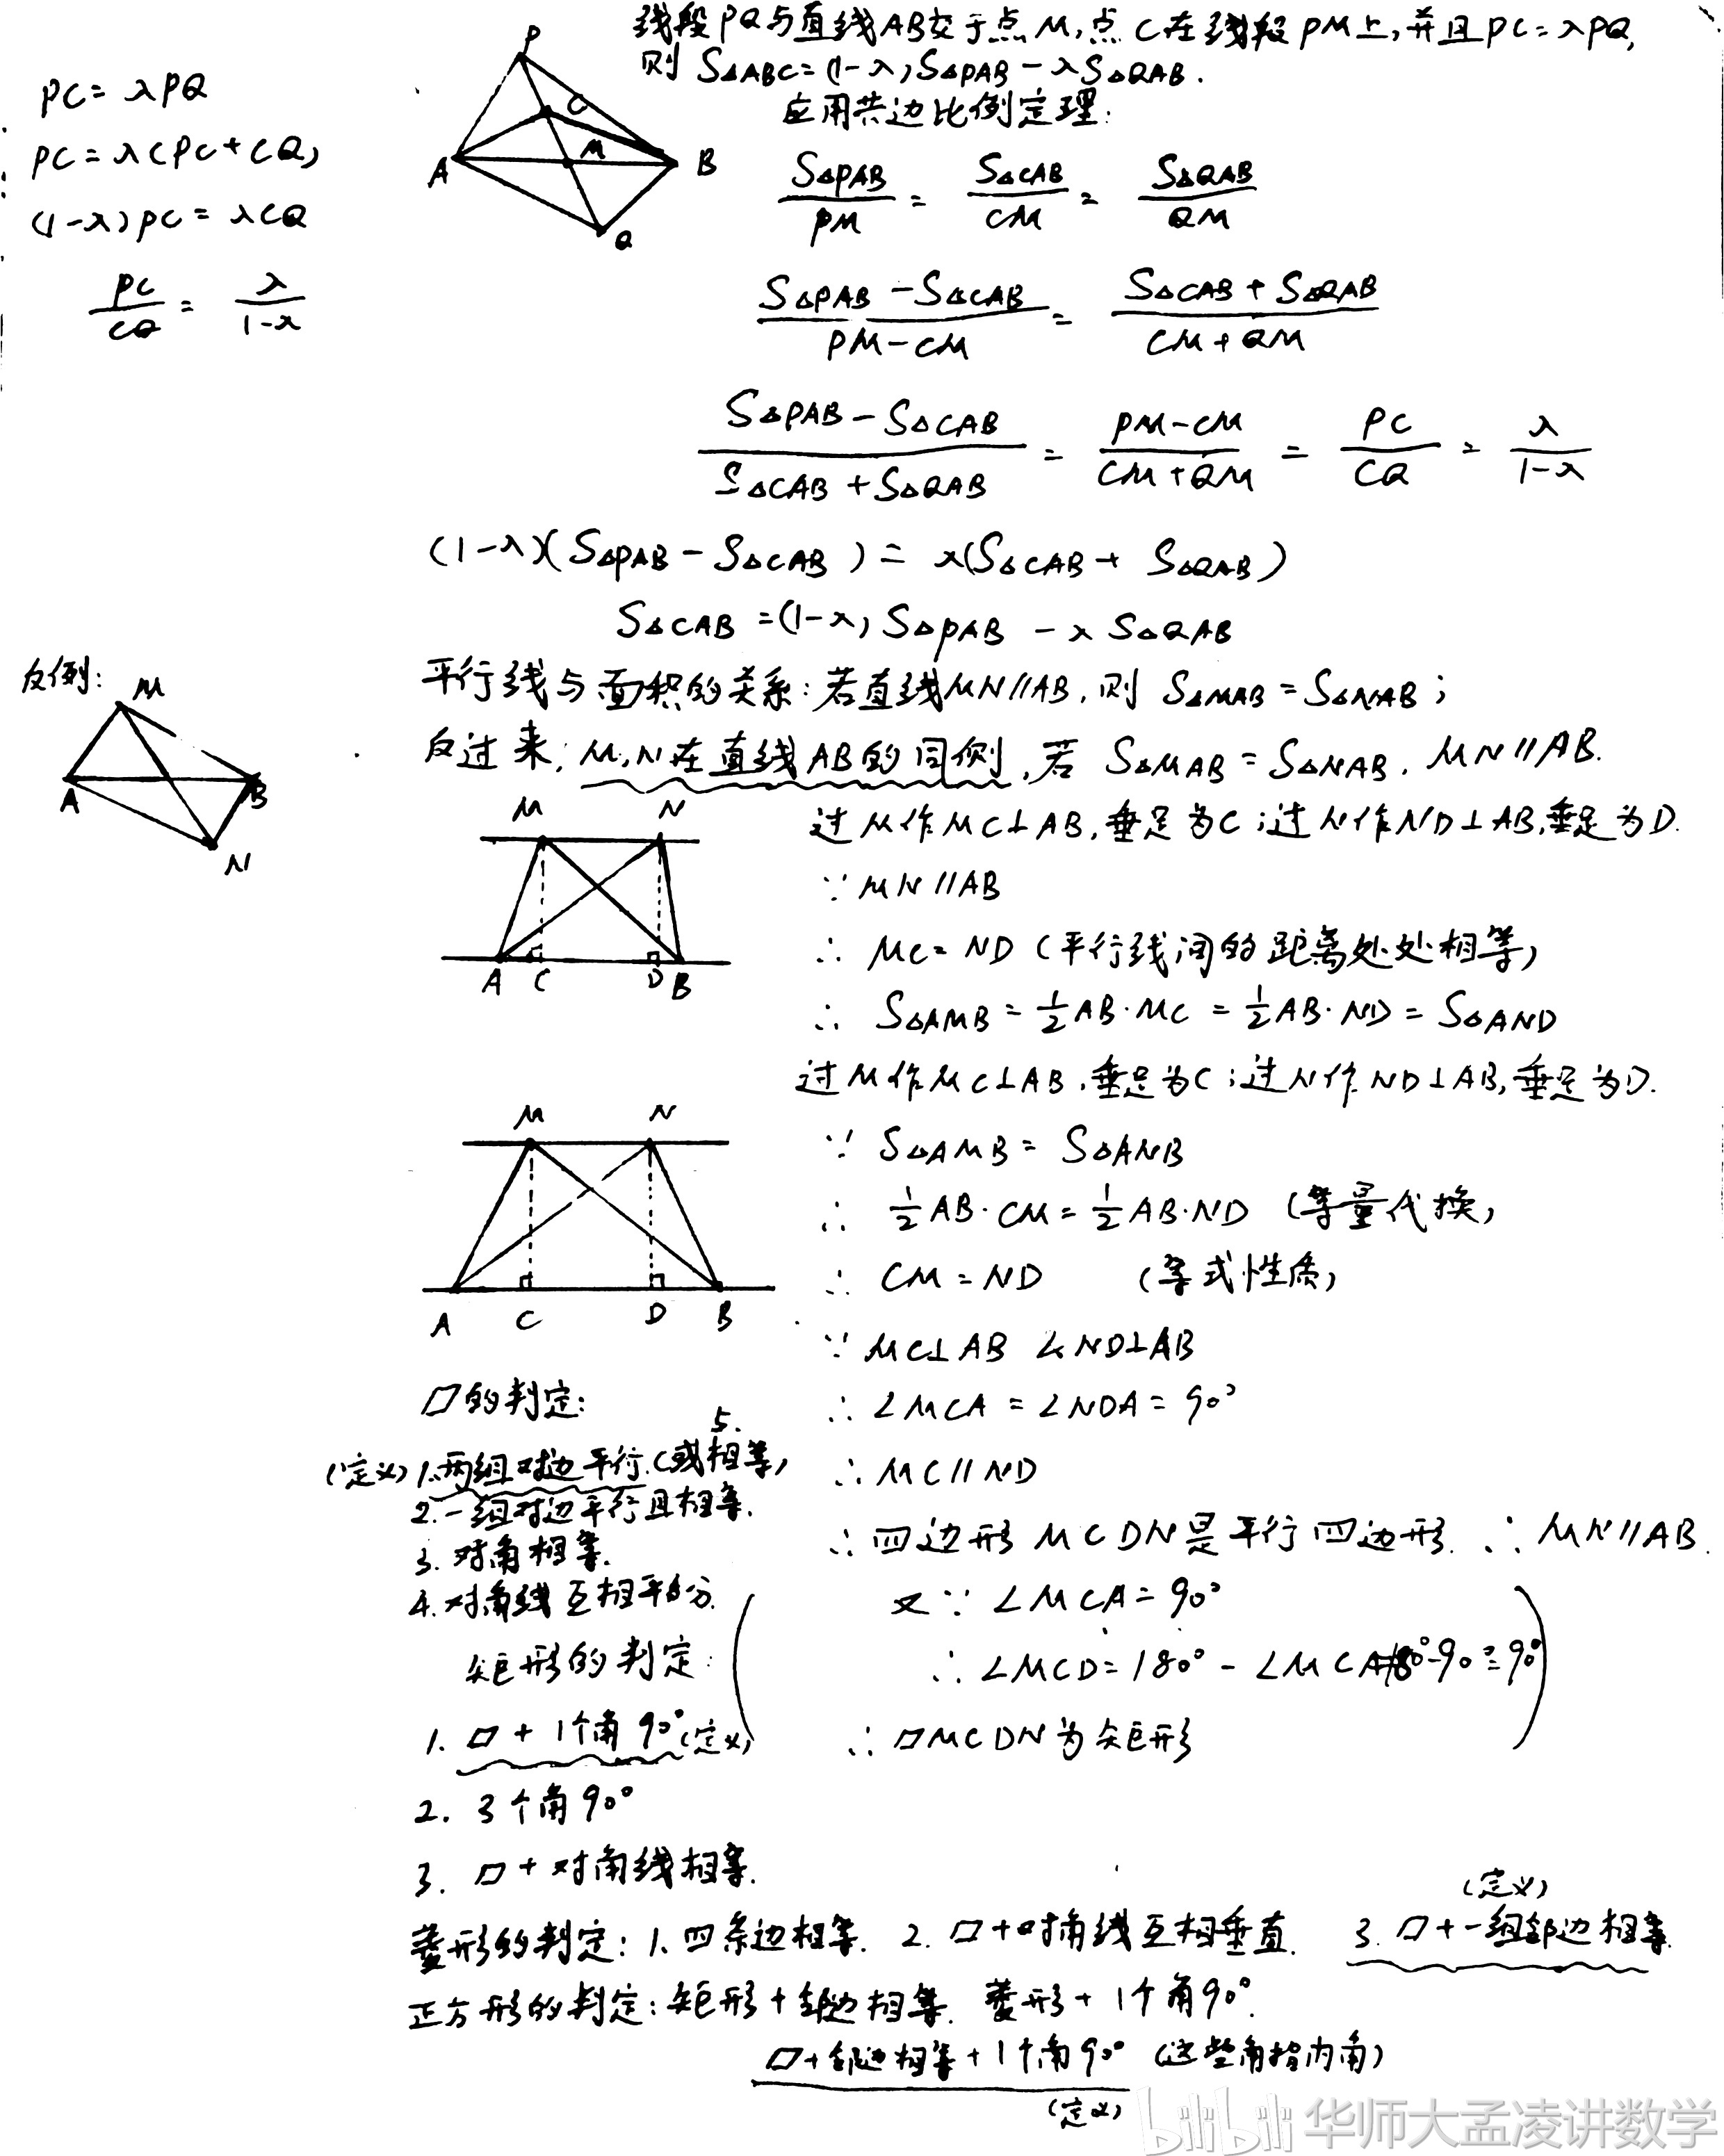 线段PQ与直线AB交于点M,点C在线段PM上,并且PC=λPQ,
则 S△ABC=(1-λ)S△PAB-λS△QAB.
应用共边比例定理:
PC=λPQ
PC=λ(PC+CQ)
(1-λ)PC=λCQ
PC/CQ = λ/(1-λ)
P
C
A M B
Q
S△PAB/PM = S△CAB/CM = S△QAB/QM
(S△PAB-S△CAB)/(PM-CM) = (S△CAB+S△QAB)/(CM+QM)
(S△PAB-S△CAB)/(S△CAB+S△QAB) = (PM-CM)/(CM+QM) = PC/CQ = λ/(1-λ)
(1-λ)(S△PAB-S△CAB)=λ(S△CAB+S△QAB)
S△CAB=(1-λ)S△PAB-λS△QAB
反例:
M
A B
N
平行线与面积的关系:若直线MN∥AB,则 S△MAB=S△NAB;
反过来,M,N在直线AB的同侧,若 S△MAB=S△NAB,MN∥AB.
M N
A C D B
过M作MC⊥AB,垂足为C;过N作ND⊥AB,垂足为D.
∵MN∥AB
∴MC=ND(平行线间的距离处处相等)
∴S△AMB=½AB·MC=½AB·ND=S△AND
过M作MC⊥AB,垂足为C;过N作ND⊥AB,垂足为D.
M N
A C D B
∵S△AMB=S△ANB
∴½AB·CM=½AB·ND (等量代换)
∴CM=ND (等式性质)
∵MC⊥AB ND⊥AB
∴∠MCA=∠NDA=90°
∴MC∥ND
∴四边形MCDN是平行四边形.∴MN∥AB.
又∵∠MCA=90°
∴∠MCD=180°-∠MCA=180°-90°=90°
∴▱MCDN为矩形
▱的判定:
5.
(定义)1.两组对边平行.(或相等)
2.一组对边平行且相等.
3.对角相等.
4.对角线互相平分.
矩形的判定:
1.▱+1个角90°(定义)
2.3个角90°
3.▱+对角线相等.
(定义)
菱形的判定:1.四条边相等. 2.▱+对角线互相垂直. 3.▱+一组邻边相等.
正方形的判定:矩形+邻边相等. 菱形+1个角90°.
▱+邻边相等+1个角90° (这些角指内角)
(定义)
bilibili 华师大孟凌讲数学